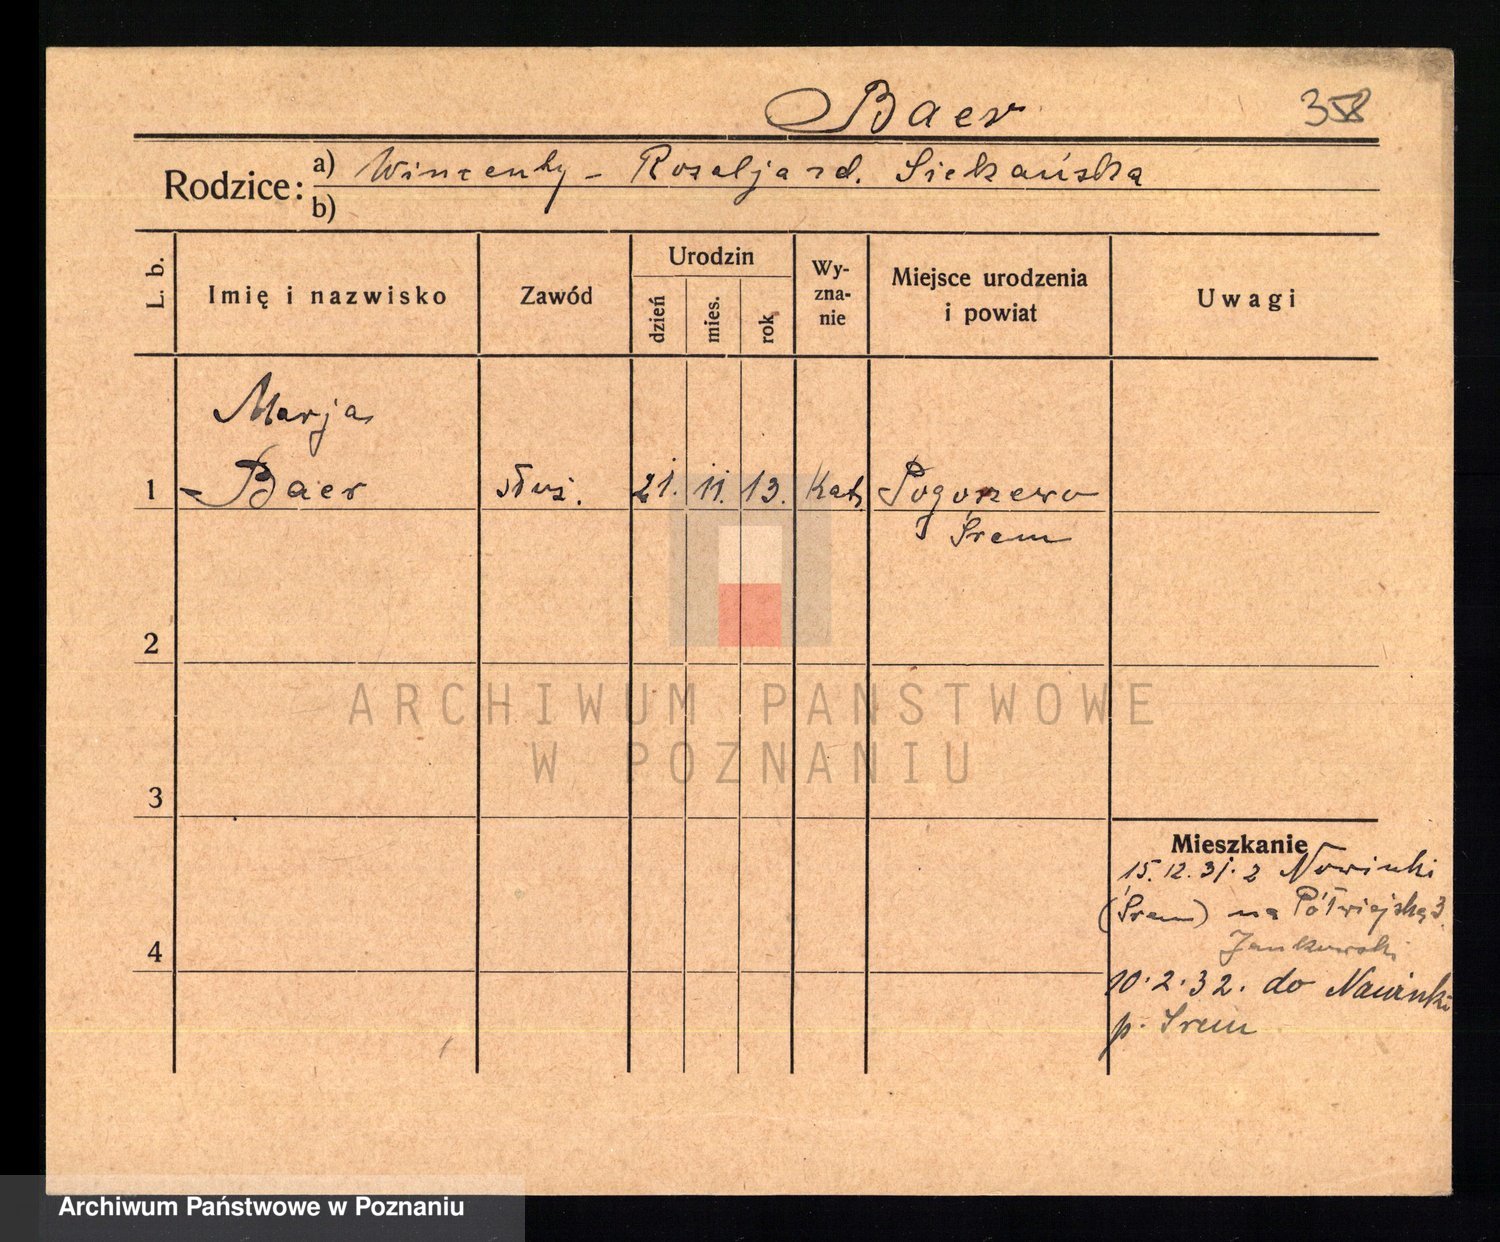 Baer
358
Rodzice: a) Wincenty - Rozalja zd. Siekańska
b)
L. b.
Imię i nazwisko
Zawód
Urodzin
dzień
mies.
rok
Wy-
zna-
nie
Miejsce urodzenia
i powiat
Uwagi
Marja
1 Baer służ. 21. 11. 13. Kat. Pogorzewo
Śrem
2
3
4
Mieszkanie
15.12.31. z Nowinki
(Śrem) na Półwiejską 3
Jankowski
10.2.32. do Nowinki
p. Śrem
ARCHIWUM PAŃSTWOWE
W POZNANIU
Archiwum Państwowe w Poznaniu